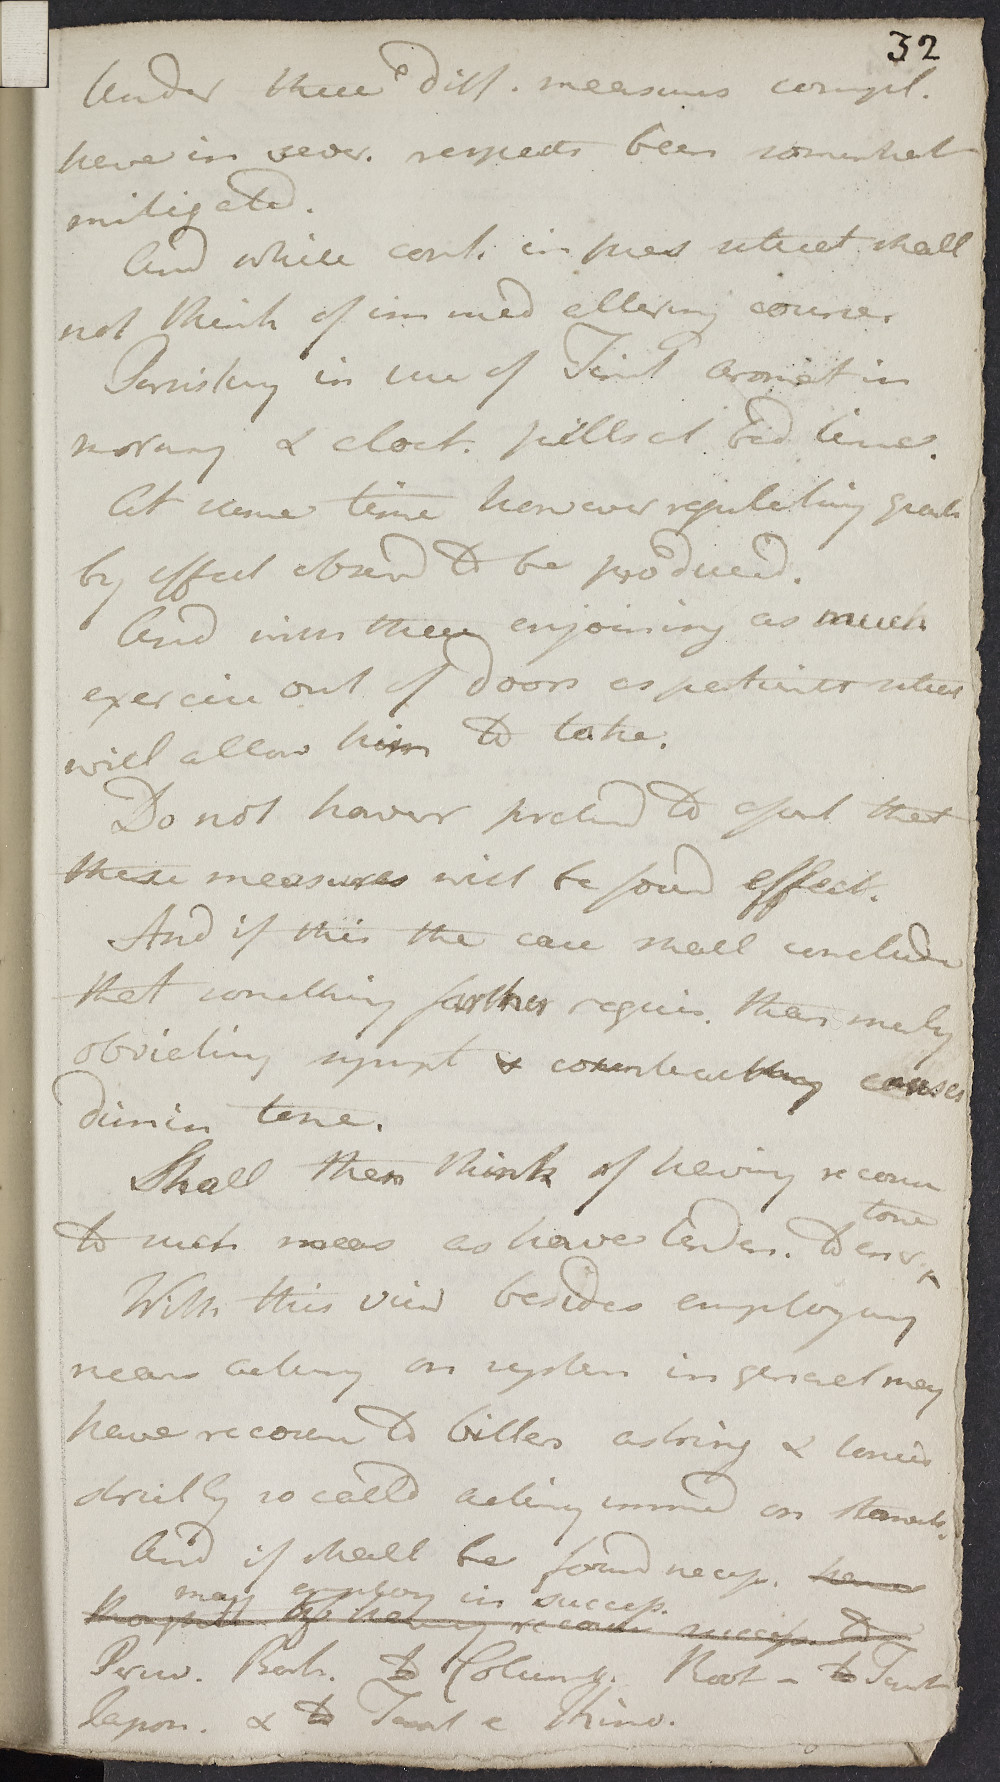 32
Under these diff. measures compl.
have in sever. respects been somewhat
mitigated.
And while cont. in pres state shall
not think of immed altering course.
Persisting in use of Tinct Aromat in
morning & aloet. pills at bed time.
At same time however regulating
by effect observ to be produced.
And with these enjoining as much
exercise out of doors as patients
will allow him to take.
Do not howevr pretend to assert that
these measures will be found effect.
And if this the case shall conclude
that something farther requir. than merly
obviating sympt & counteracting causes
dimin tone.
Shall then think of having recour
to such meas as have tenden. to
tone
With this view besides employing
means acting on system in general may
have recourse to bitters astring & tonics
strictly so calld acting immed on stomach.
And if shall be found necess. have
may employ in success.
thought of having recourse success. to
Peruv. Bark. to Columb. Root - to Tinct
Japon. & to Tinct e Kino.